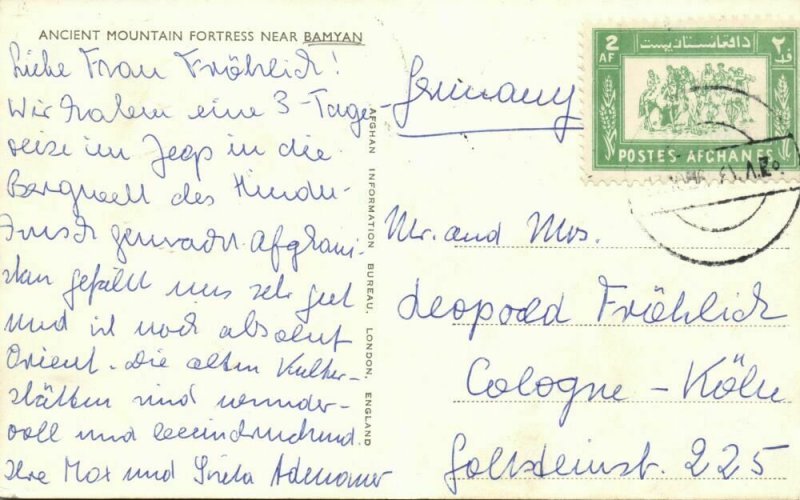 ANCIENT MOUNTAIN FORTRESS NEAR BAMYAN
Liebe Frau Fröhlich!
Wir haben eine 3-Tage-
reise im Jeep in die
Bergwelt des Hindu-
kusch gemacht. Afghani-
stan gefällt uns sehr gut
und ist noch absolut
Orient. Die alten Kultur-
stätten sind wunder-
voll und beeindruckend.
Ihre Max und Adenauer
AFGHAN INFORMATION BUREAU, LONDON, ENGLAND
Germany
2
AF
دافغانستان پست
۲
POSTES AFGHANES
Mr. and Mrs.
Leopold Fröhlich
Cologne - Köln
225